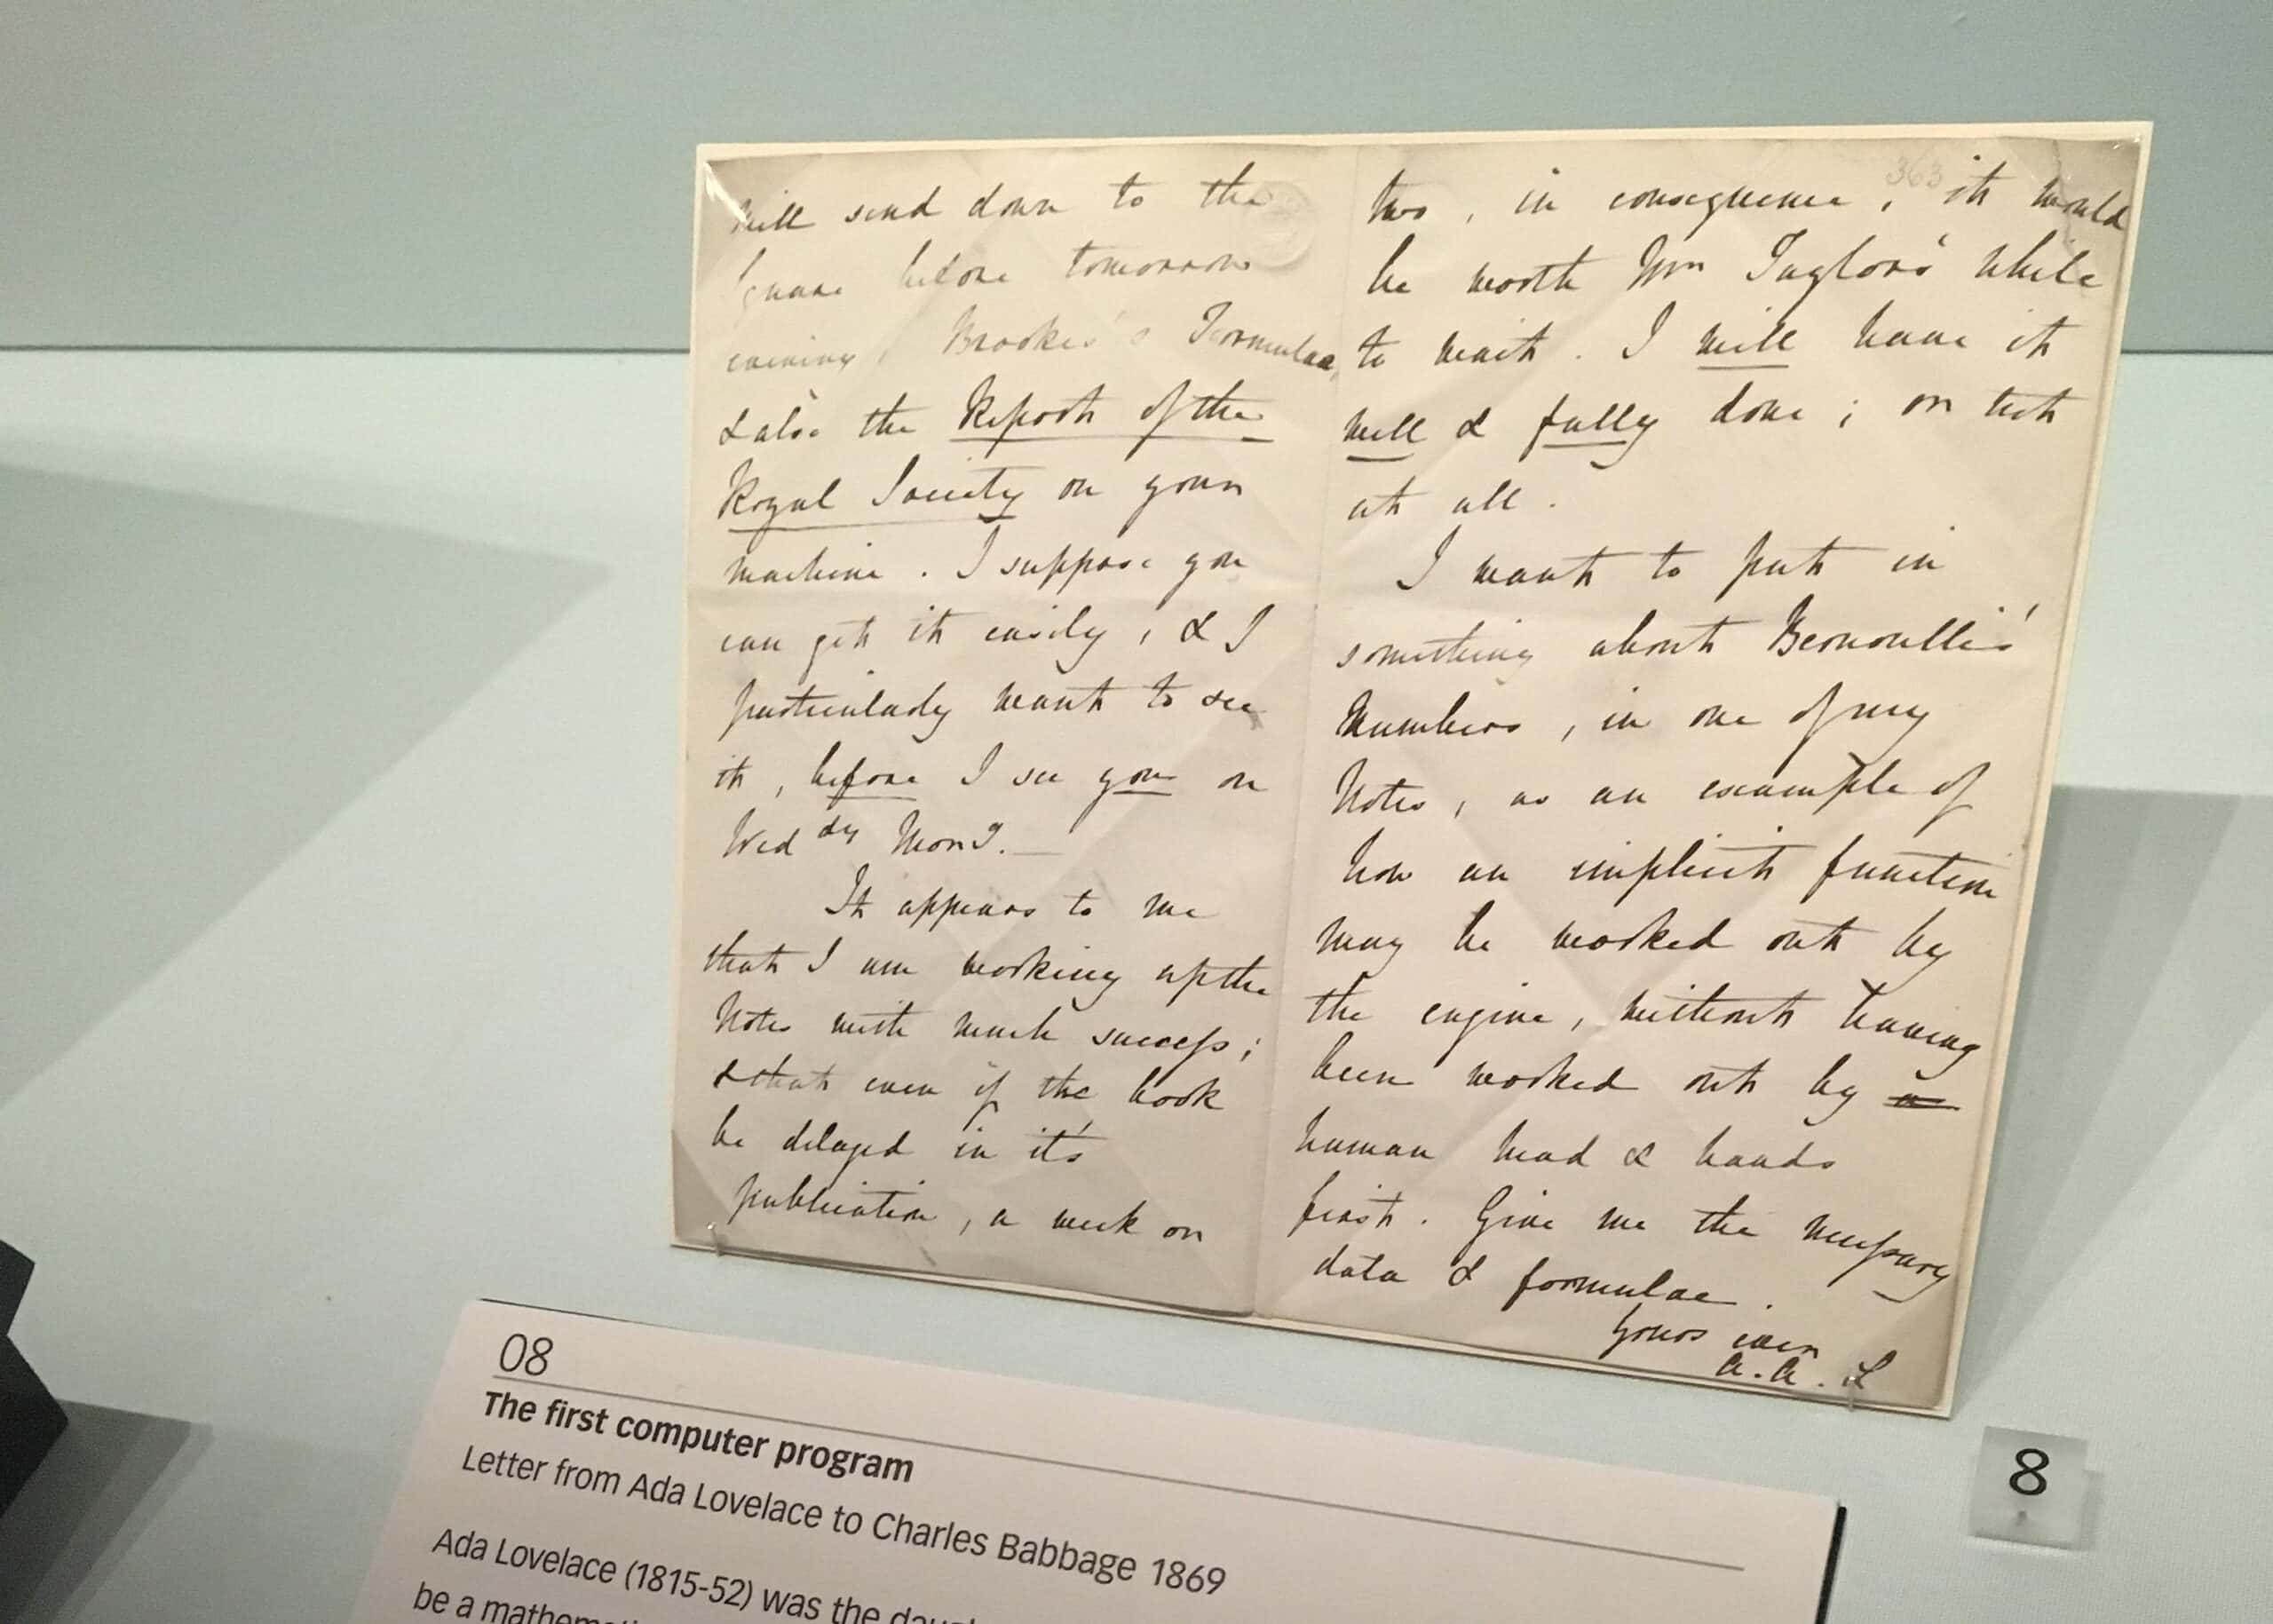 will send down to the
Square before tomorrow
evening, Brooke's Formulae,
& also the Report of the
Royal Society on your
machine. I suppose you
can get it easily, & I
particularly want to see
it, before I see you on
Wed dy Morng.
It appears to me
that I am working up the
Notes with much success;
& that even if the book
be delayed in it's
publication, a week or
two, in consequence, it would
be worth Mr Taylor's while
to wait. I will have it
well & fully done; or not
at all.
I want to put in
something about Bernoulli's
Numbers, in one of my
Notes, as an example of
how an implicit function
may be worked out by
the engine, without having
been worked out by a
human head & hands
first. Give me the necessary
data & formulae.
Yours ever
A.A.L
363
08
The first computer program
Letter from Ada Lovelace to Charles Babbage 1869
Ada Lovelace (1815-52) was the
be a
8